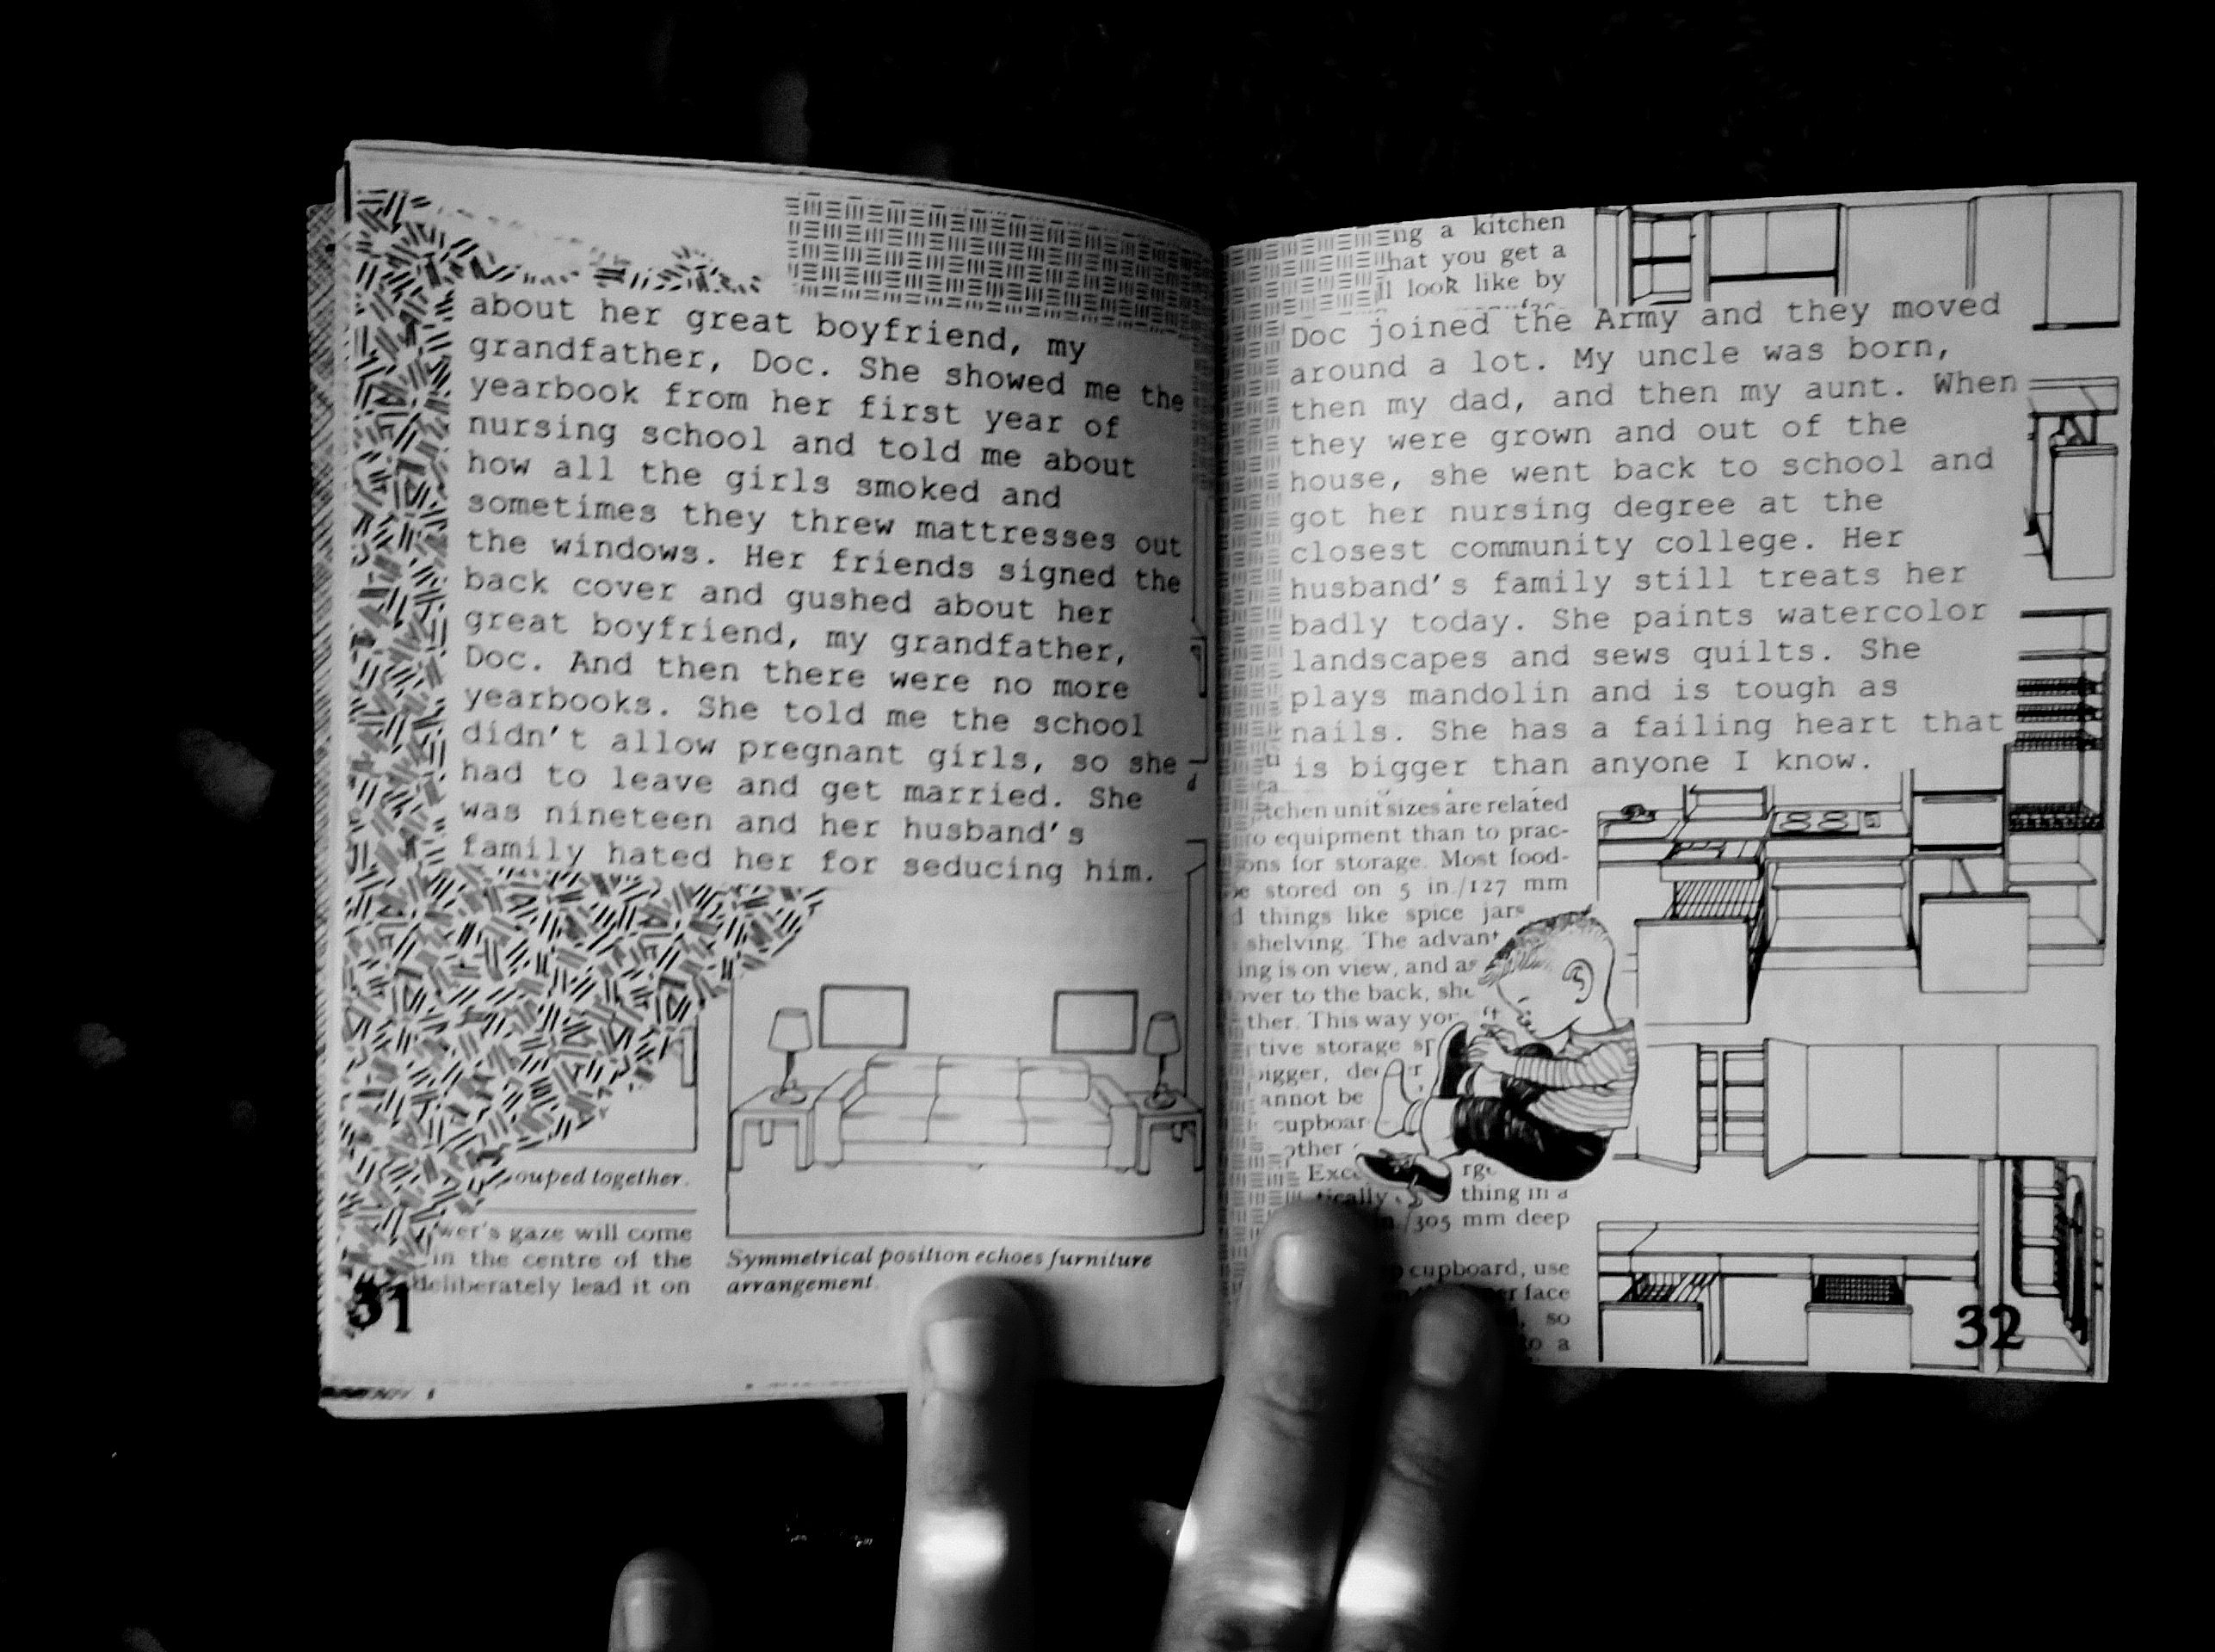 about her great boyfriend, my
grandfather, Doc. She showed me the
yearbook from her first year of
nursing school and told me about
how all the girls smoked and
sometimes they threw mattresses out
the windows. Her friends signed the
back cover and gushed about her
great boyfriend, my grandfather,
Doc. And then there were no more
yearbooks. She told me the school
didn't allow pregnant girls, so she
had to leave and get married. She
was nineteen and her husband's
family hated her for seducing him.
ouped together.
wer's gaze will come
in the centre of the
deliberately lead it on
Symmetrical position echoes furniture
arrangement.
31
ng a kitchen
hat you get a
ll look like by
Doc joined the Army and they moved
around a lot. My uncle was born,
then my dad, and then my aunt. When
they were grown and out of the
house, she went back to school and
got her nursing degree at the
closest community college. Her
husband's family still treats her
badly today. She paints watercolor
landscapes and sews quilts. She
plays mandolin and is tough as
nails. She has a failing heart that
is bigger than anyone I know.
tchen unit sizes are related
to equipment than to prac-
ons for storage. Most food-
e stored on 5 in./127 mm
d things like spice jars
shelving. The advant
ing is on view, and as
over to the back, she
ther. This way yo
tive storage sp
igger, de
annot be
cupboar
other
Exce
tically thing in a
/305 mm deep
cupboard, use
er face
so
o a
32